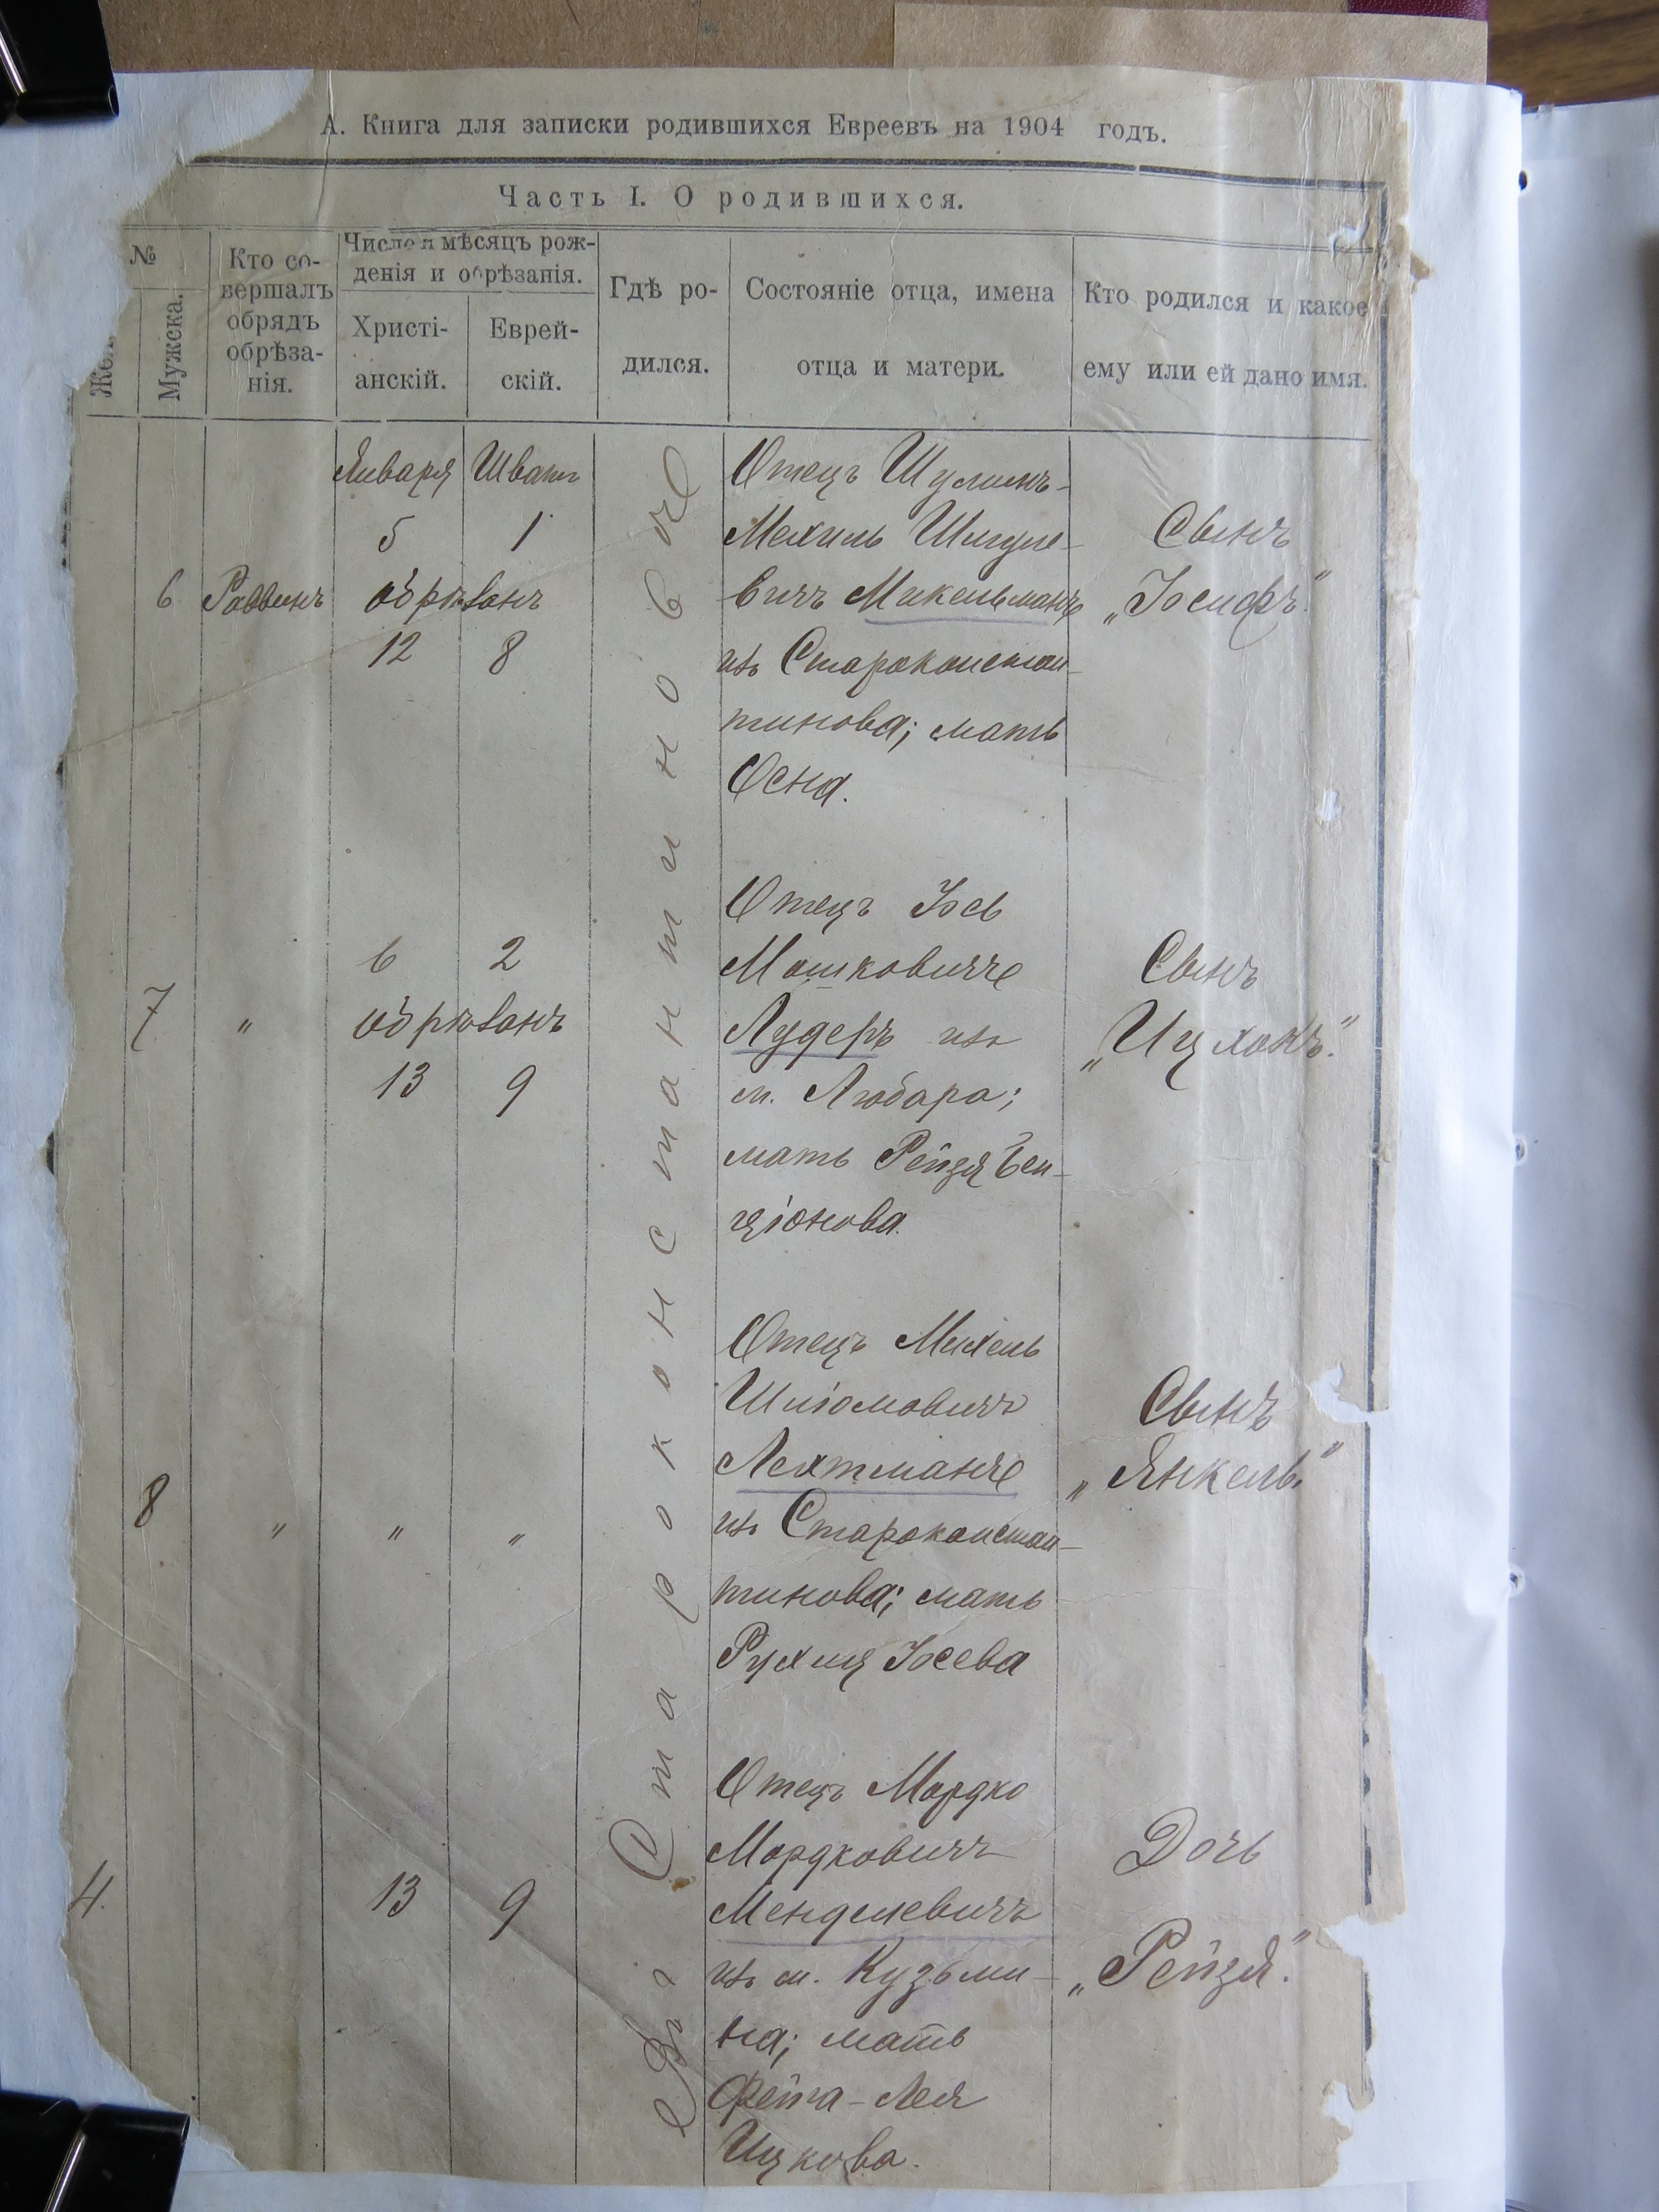 А. Книга для записки родившихся Евреевъ на 1904 годъ.
Часть I. О родившихся.
№
Жен
Мужска.
Кто со-
вершалъ
обрядъ
обрѣза-
нія.
Число и мѣсяцъ рож-
денія и обрѣзанія.
Христі-
анскій.
Еврей-
скій.
Гдѣ ро-
дился.
Состояніе отца, имена
отца и матери.
Кто родился и какое
ему или ей дано имя.
Въ г. Староконстантиновѣ
Января Шватъ
5 1
6 Раввинъ обрѣзанъ
12 8
Отецъ Шулимъ-
Мехиль Шмуле-
вичъ Микельманъ
изъ Староконстан-
тинова; мать
Осна.
Сынъ
„Іосифъ."
6 2
7 " обрѣзанъ
13 9
Отецъ Іось
Мошковичъ
Лудеръ изъ
м. Любара;
мать Рейзя Бен-
ціонова.
Сынъ
„Ицхокъ."
8 " " "
Отецъ Михель
Шліомовичъ
Лехтманъ
изъ Староконстан-
тинова; мать
Рухля Іосева
Сынъ
„Янкель."
4. 13 9
Отецъ Мордко
Мордковичъ
Менделевичъ
изъ м. Кузьми-
на; мать
Фейга-Лея
Ицкова.
Дочь
„Рейзя."